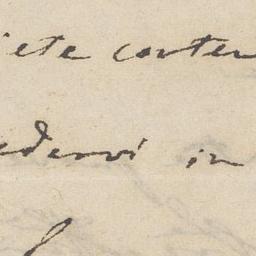 iete corten
edervi in